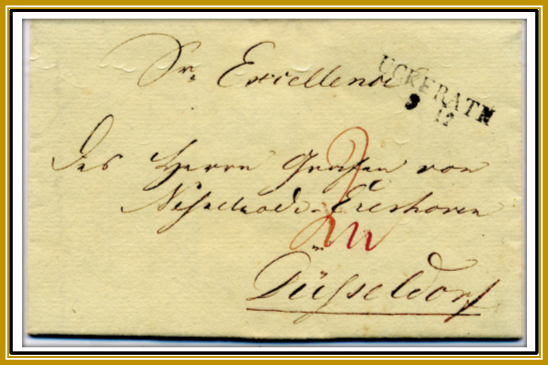 Sr. Excellenz
UCKERATH
9 12
Des Herrn Grafen von
Nesselrode-Ereshoven
Düsseldorf